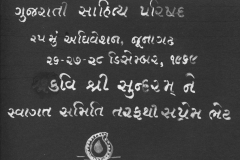 ગુજરાતી સાહિત્ય પરિષદ
૨૫મું અધિવેશન, જૂનાગઢ
૨૬-૨૭-૨૮ ડિસેમ્બર, ૧૯૭૯
કવિ શ્રી સુન્દરમ્ ને
સ્વાગત સમિતિ તરફથી સપ્રેમ ભેટ